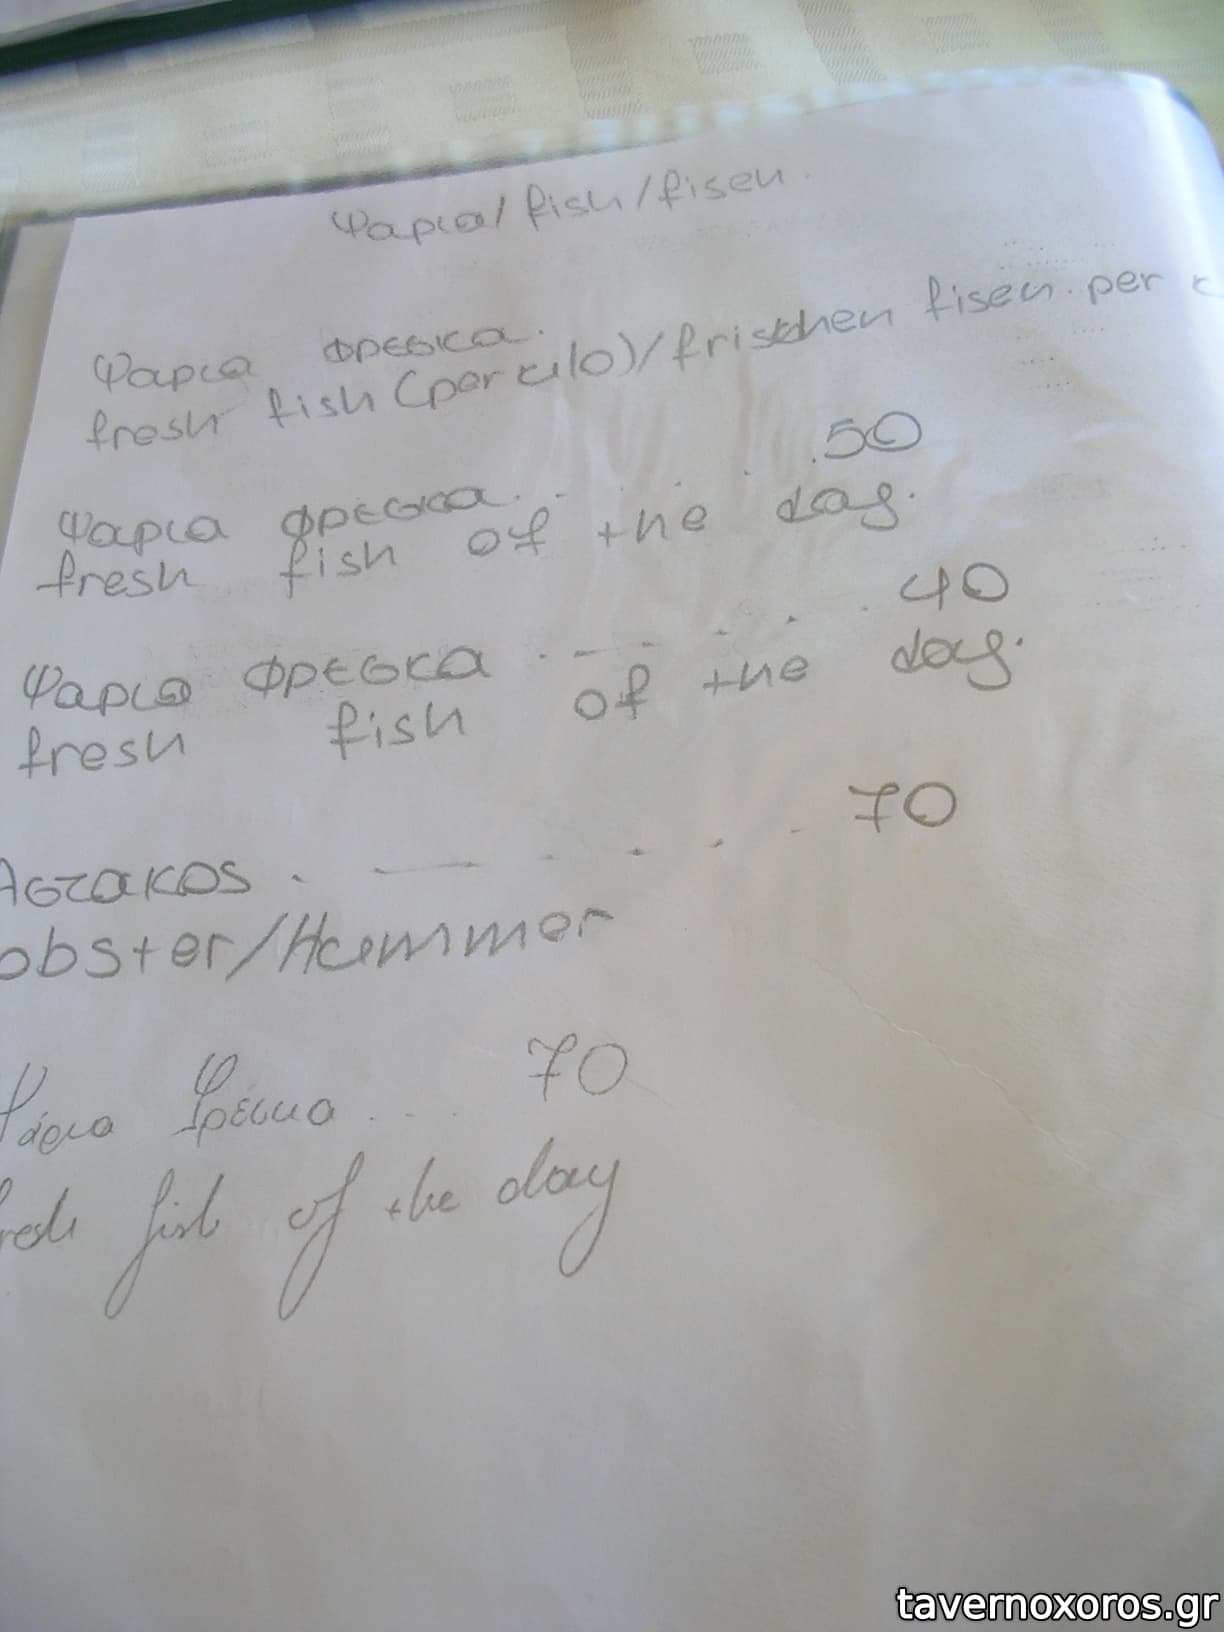 Ψαρια/fish/fisen.
Ψαρια φρεσκα.
fresh fish (per cilo)/frischen fisen per c
Ψαρια φρεσκα. - . . . . 50
fresh fish of the day.
Ψαρια φρεσκα . - - . . . 40
fresh fish of the day.
Αστακος . — - - - - 70
obster/Hummer
Ψάρια Φρέσκα ... 70
resh fish of the day
tavernoxoros.gr